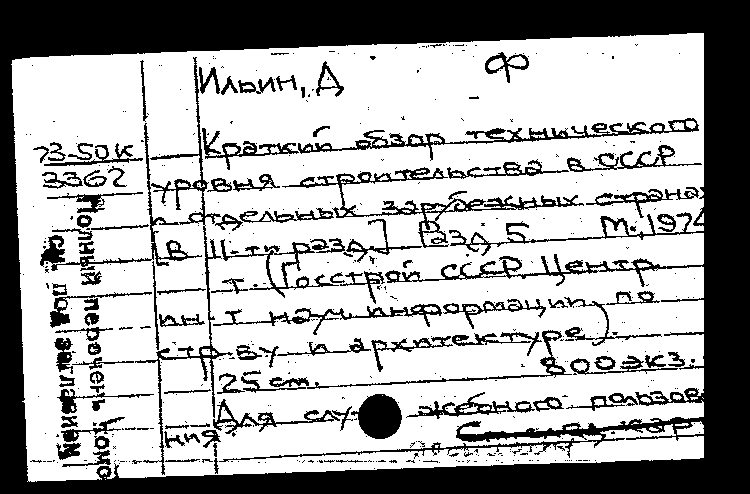 Ильин, Д
Ф
73-50К
3362
Краткий обзор технического
уровня строительства в СССР
и отдельных зарубежных страна
[В II-ти разд.] Разд. 5. М., 1974
т. (Госстрой СССР. Центр.
ин-т науч. информации по
стр-ву и архитектуре).
25 см. 800 экз.
Для служебного пользова
ния.
Полный перечень томо
см. под заглавием